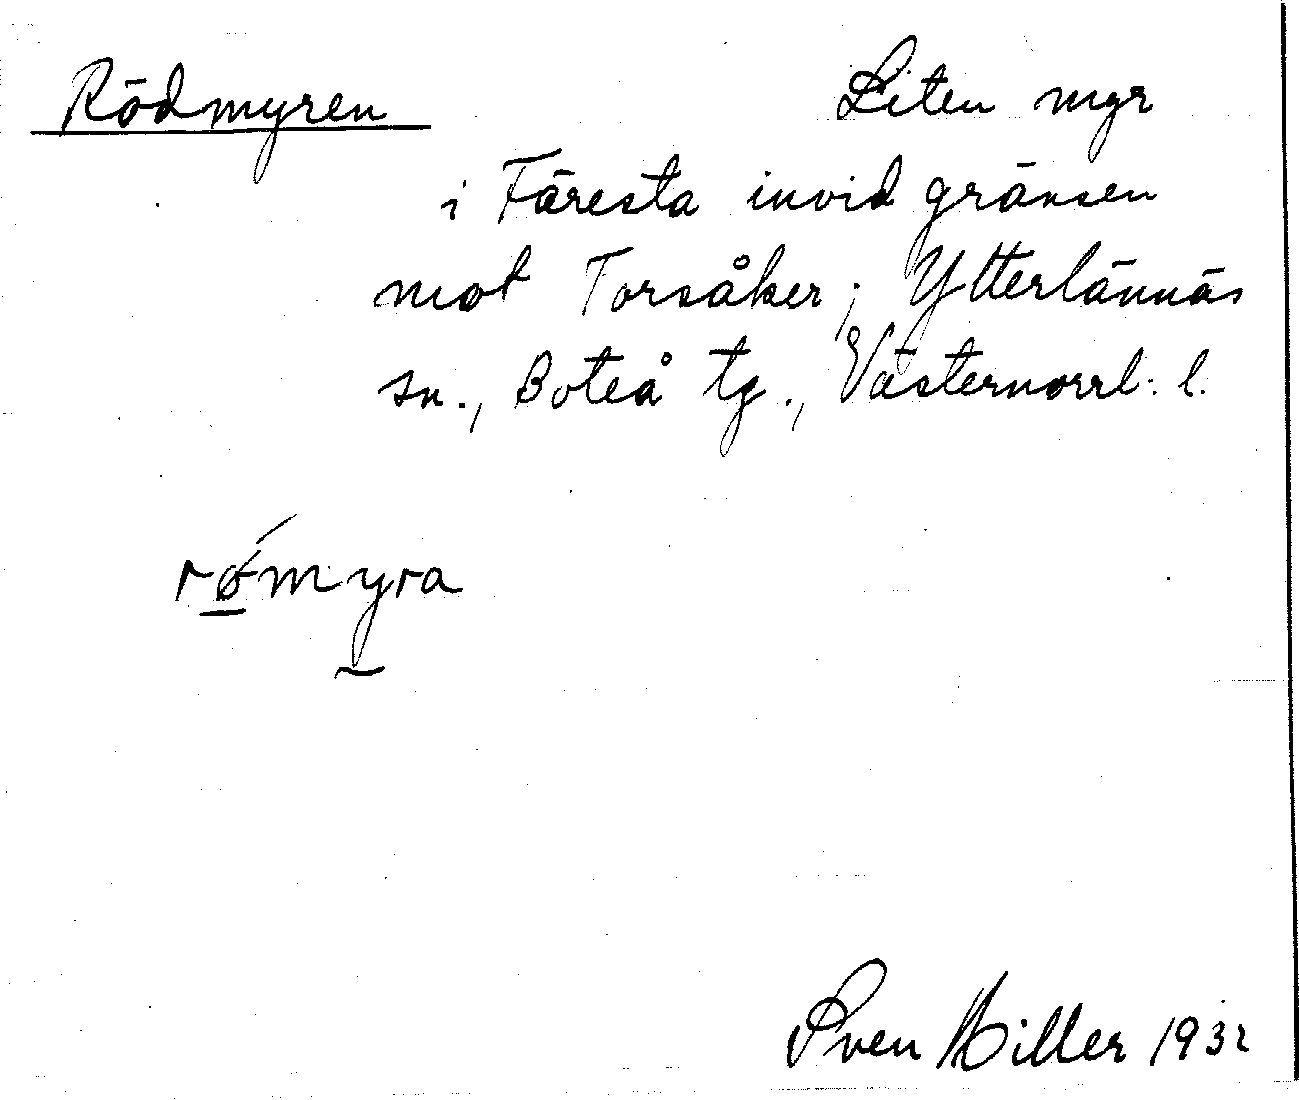 Rödmyren Liten myr
i Färesta invid gränsen
mot Torsåker; Ytterlännäs
sn., Boteå tg., Västernorrl. l.
rǿmyra
Sven Hiller 1932